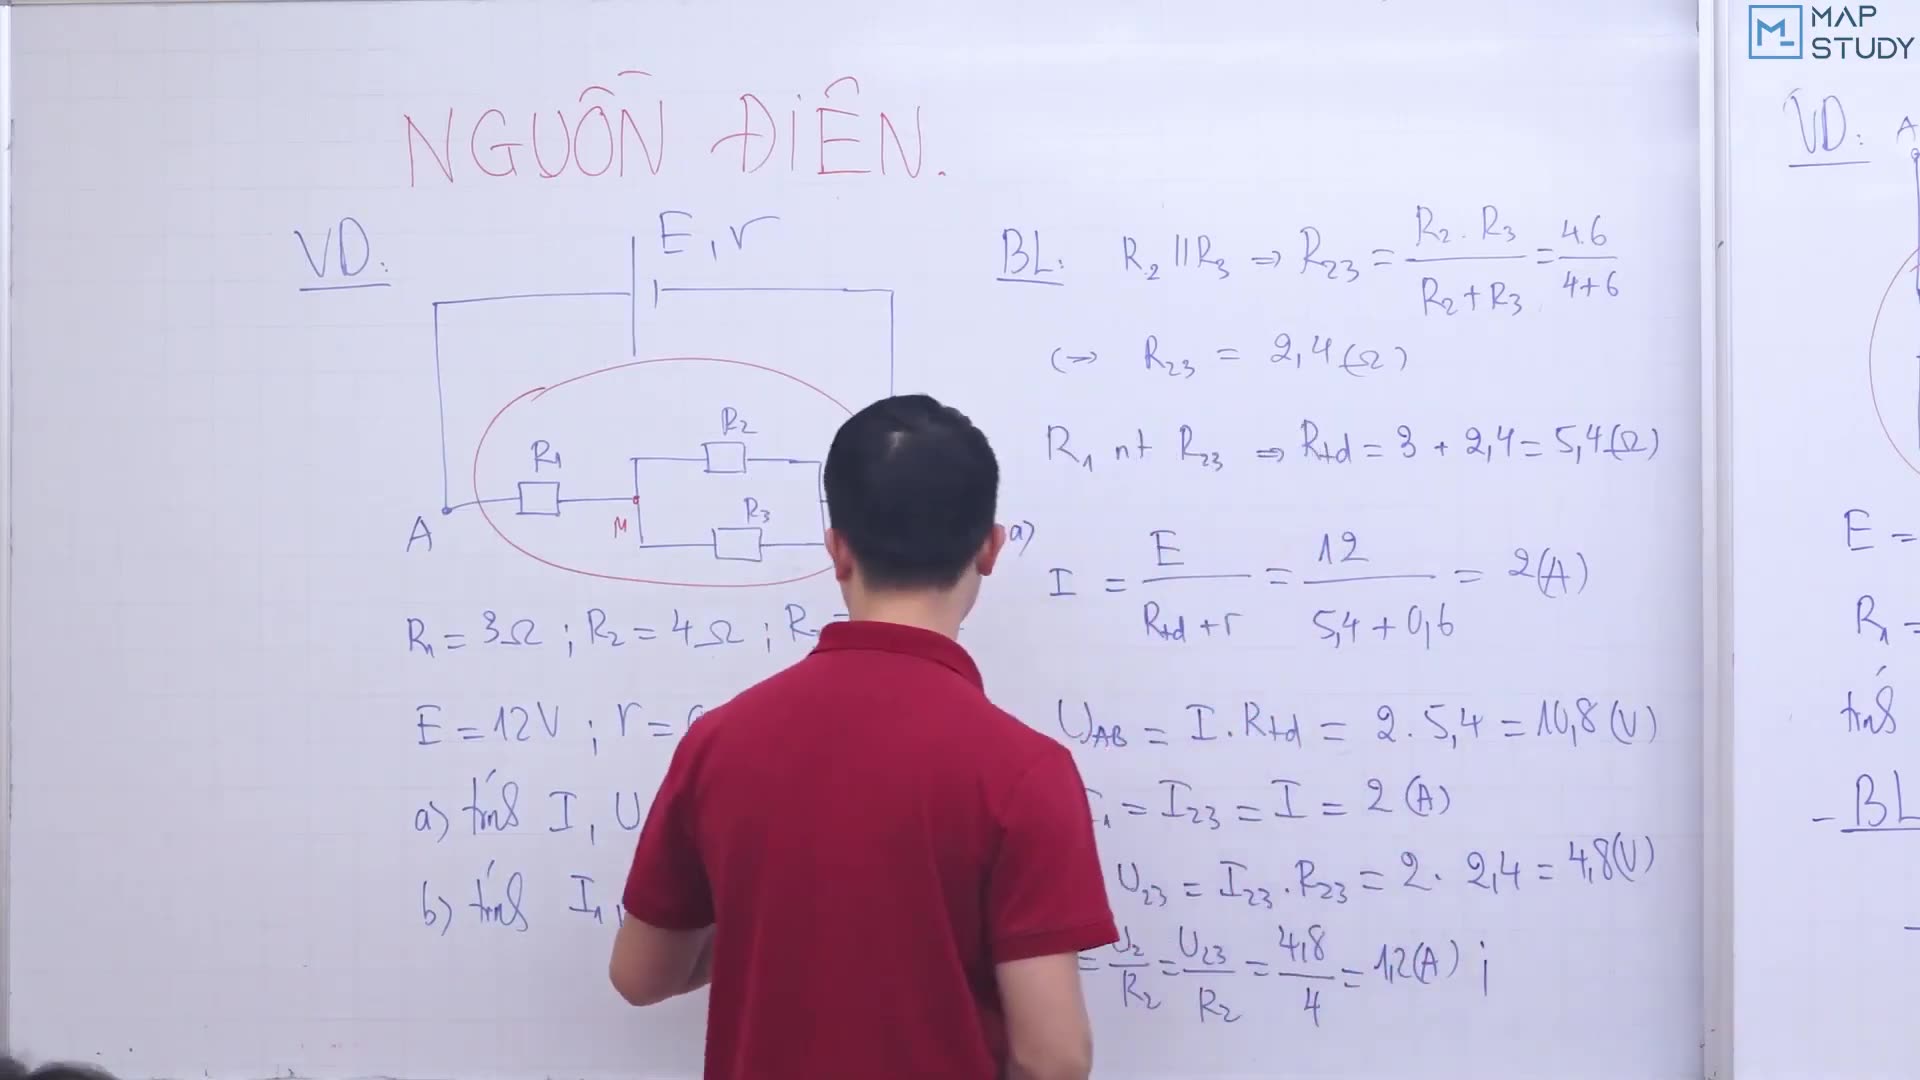 MAP
STUDY
NGUỒN ĐIỆN.
VD:
E, r
R1
R2
R3
A
M
R1 = 3Ω ; R2 = 4Ω ;
E = 12V ; r =
a) tính I, U
b) tính I1,
BL: R2 // R3 => R23 = R2 . R3 / R2 + R3 = 4.6 / 4+6
<=> R23 = 2,4 (Ω)
R1 nt R23 => Rtd = 3 + 2,4 = 5,4 (Ω)
a)
I = E / Rtd + r = 12 / 5,4 + 0,6 = 2(A)
UAB = I . Rtd = 2 . 5,4 = 10,8 (V)
= I23 = I = 2 (A)
U23 = I23 . R23 = 2 . 2,4 = 4,8(V)
= U2 / R2 = U23 / R2 = 4,8 / 4 = 1,2(A) ;
VD: A
E =
R1 =
tính
- BL